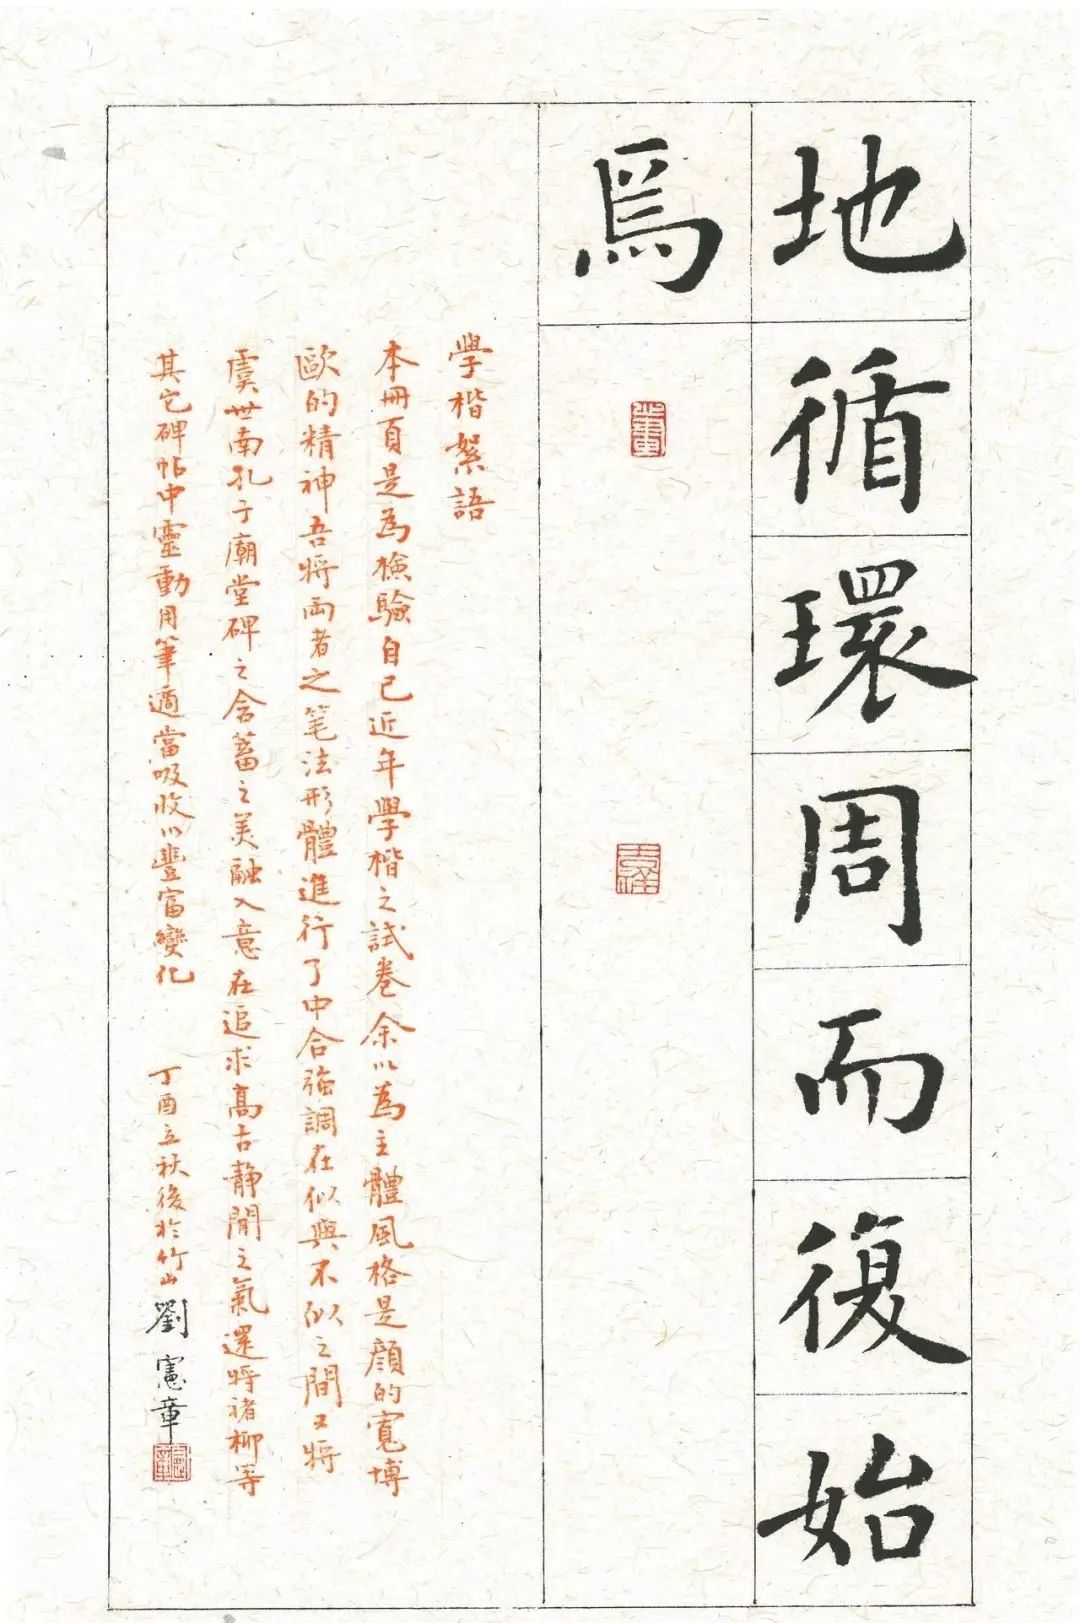 地循環周而復始
焉
學楷絮語
本冊頁是為檢驗自己近年學楷之試卷余以為主體風格是顔的寬博
歐的精神吾將兩者之笔法形體進行了中合強調在似與不似之間又將
虞世南孔子廟堂碑之含蓄之美融入意在追求高古靜閒之氣還將褚柳等
其它碑帖中靈動用筆適當吸收以豐富變化
丁酉立秋後於竹山劉憲章